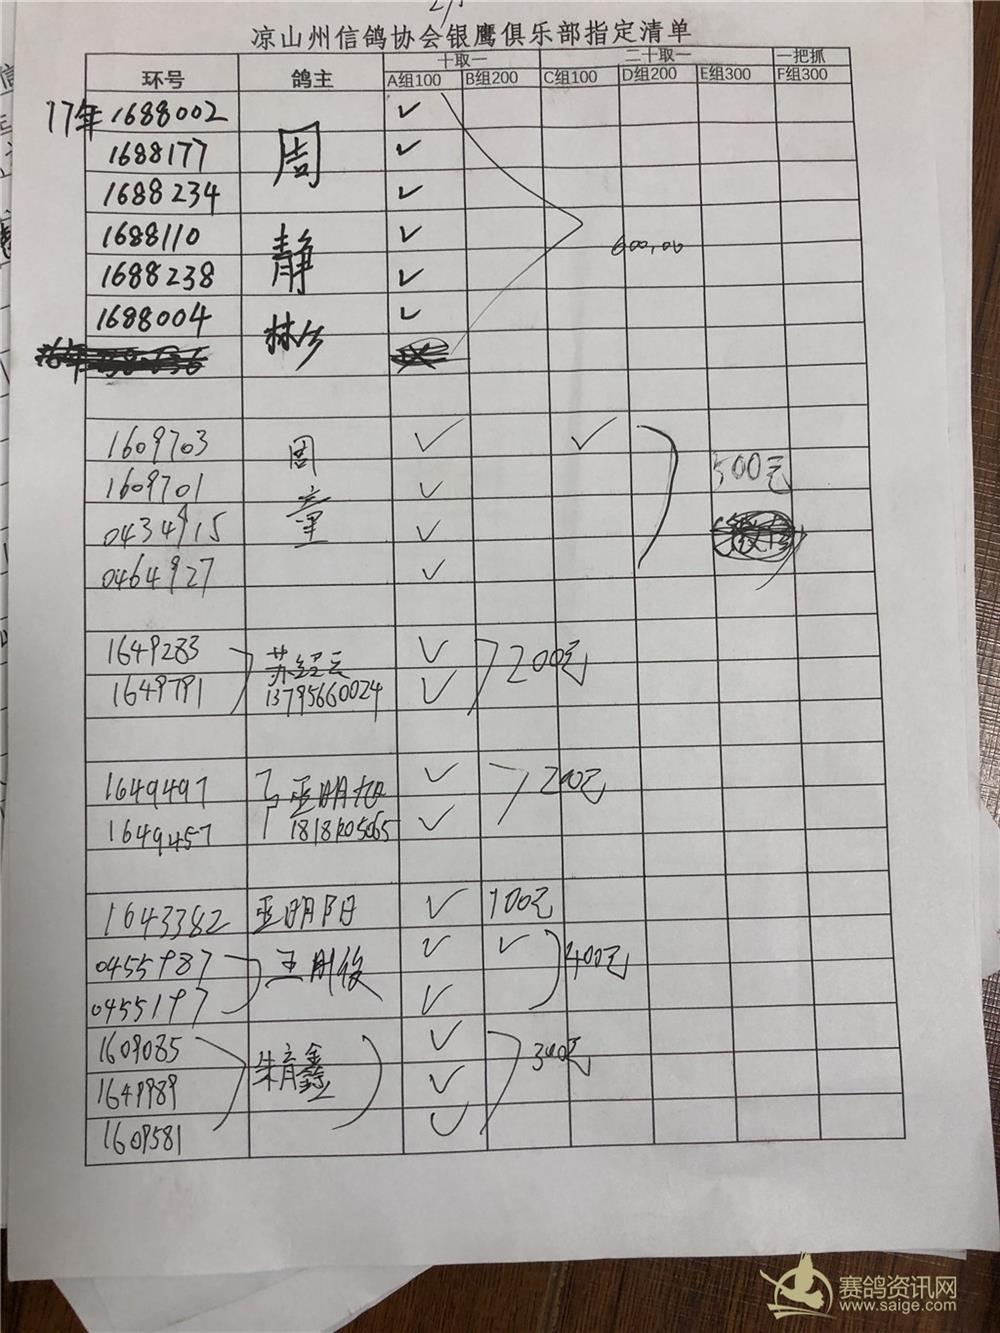 凉山州信鸽协会银鹰俱乐部指定清单
环号 鸽主 十取一 二十取一 一把抓
A组100 B组200 C组100 D组200 E组300 F组300
17年 1688002 ✓
1688177 周 ✓
1688234 ✓
1688110 静 ✓ 600,00
1688238 ✓
1688004 林 ✓
1609703 周 ✓ ✓
1609701 ✓ 500元
0434915 童 ✓
0464927 ✓
1649283 苏绍云 ✓ 200元
1649791 13795660024 ✓
1649497 亚明旭 ✓ 200元
1649457 ✓
1643382 亚明阳 ✓ 100元
0455987 王刚俊 ✓ ✓ 400元
0455197 ✓
1609085 朱育鑫 ✓ 300元
1649989 ✓
1609581 ✓
赛鸽资讯网
www.saige.com